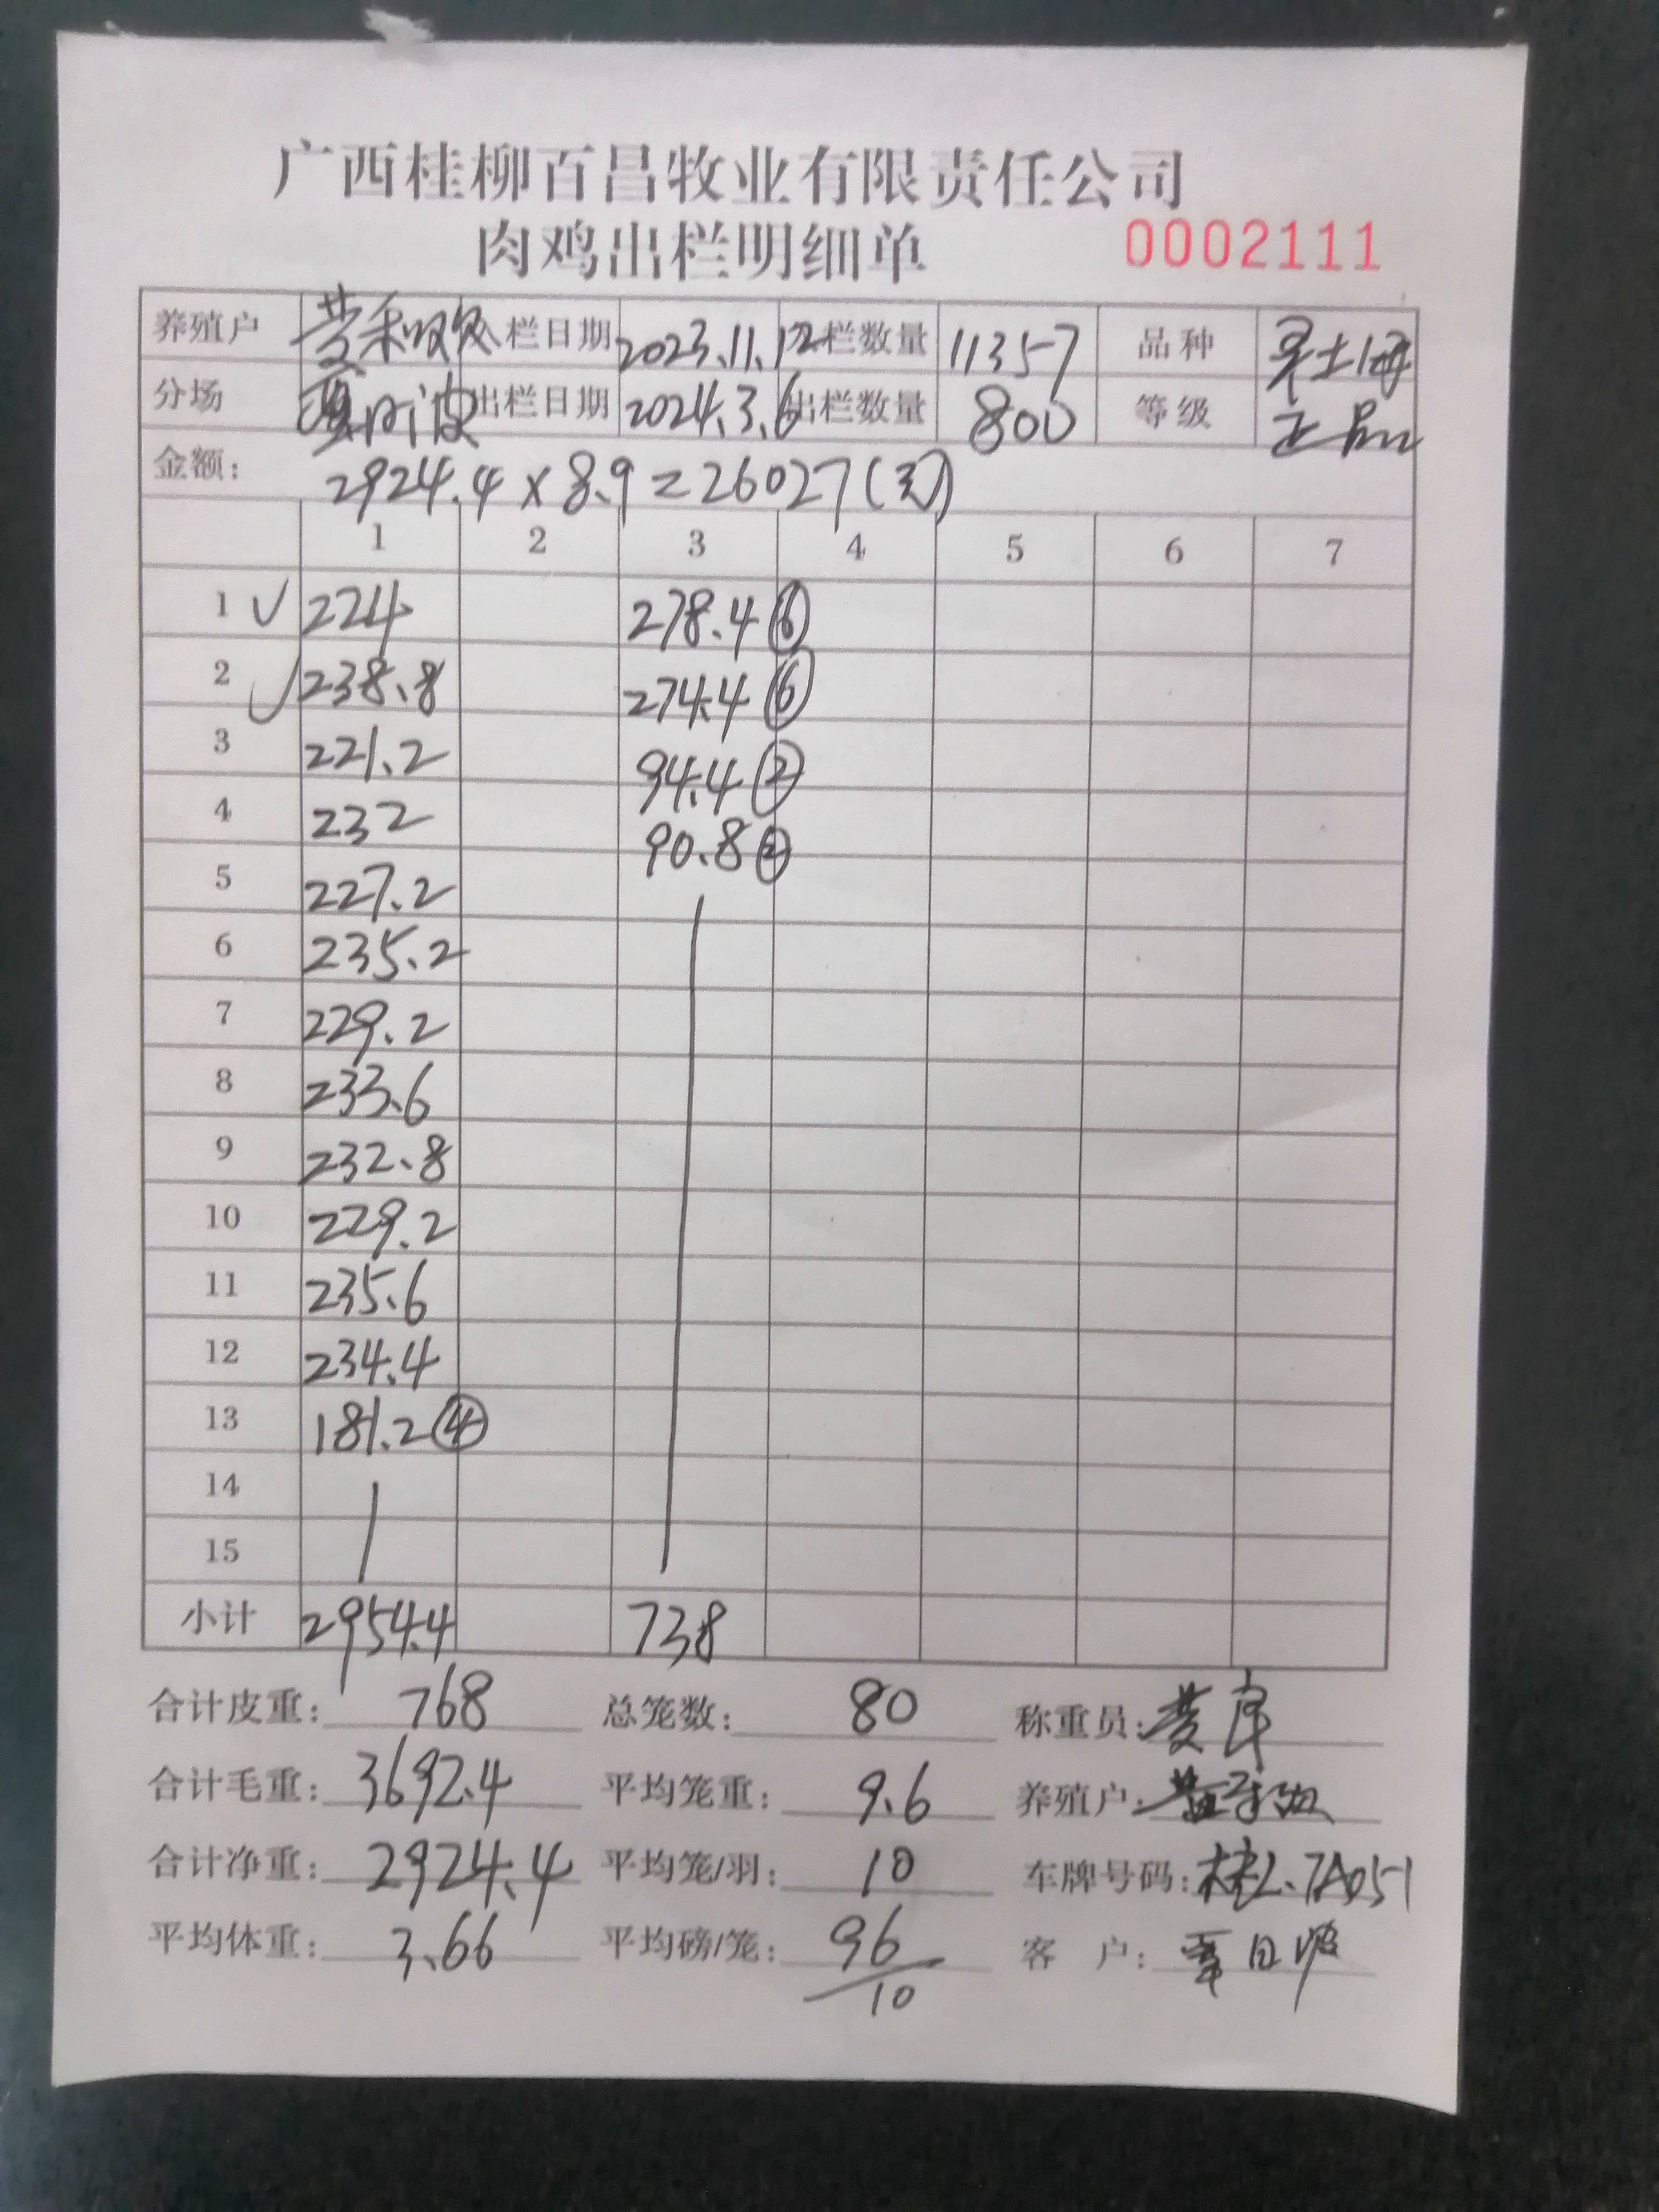 广西桂柳百昌牧业有限责任公司
肉鸡出栏明细单 0002111
养殖户 入栏日期 2023.11.12 入栏数量 11357 品种
分场 出栏日期 2024.3.6 出栏数量 800 等级 正品
金额: 2924.4 x 8.9 = 26027(元)
1 2 3 4 5 6 7
1 224 278.4 ⑥
2 238.8 274.4 ⑥
3 221.2 94.4 ②
4 232 90.8 ②
5 227.2
6 235.2
7 229.2
8 233.6
9 232.8
10 229.2
11 235.6
12 234.4
13 181.2 ④
14
15
小计 2954.4 738
合计皮重: 768 总笼数: 80 称重员:
合计毛重: 3692.4 平均笼重: 9.6 养殖户:
合计净重: 2924.4 平均笼/羽: 10 车牌号码: 桂L.7A051
平均体重: 3.66 平均磅/笼: 96/10 客户: